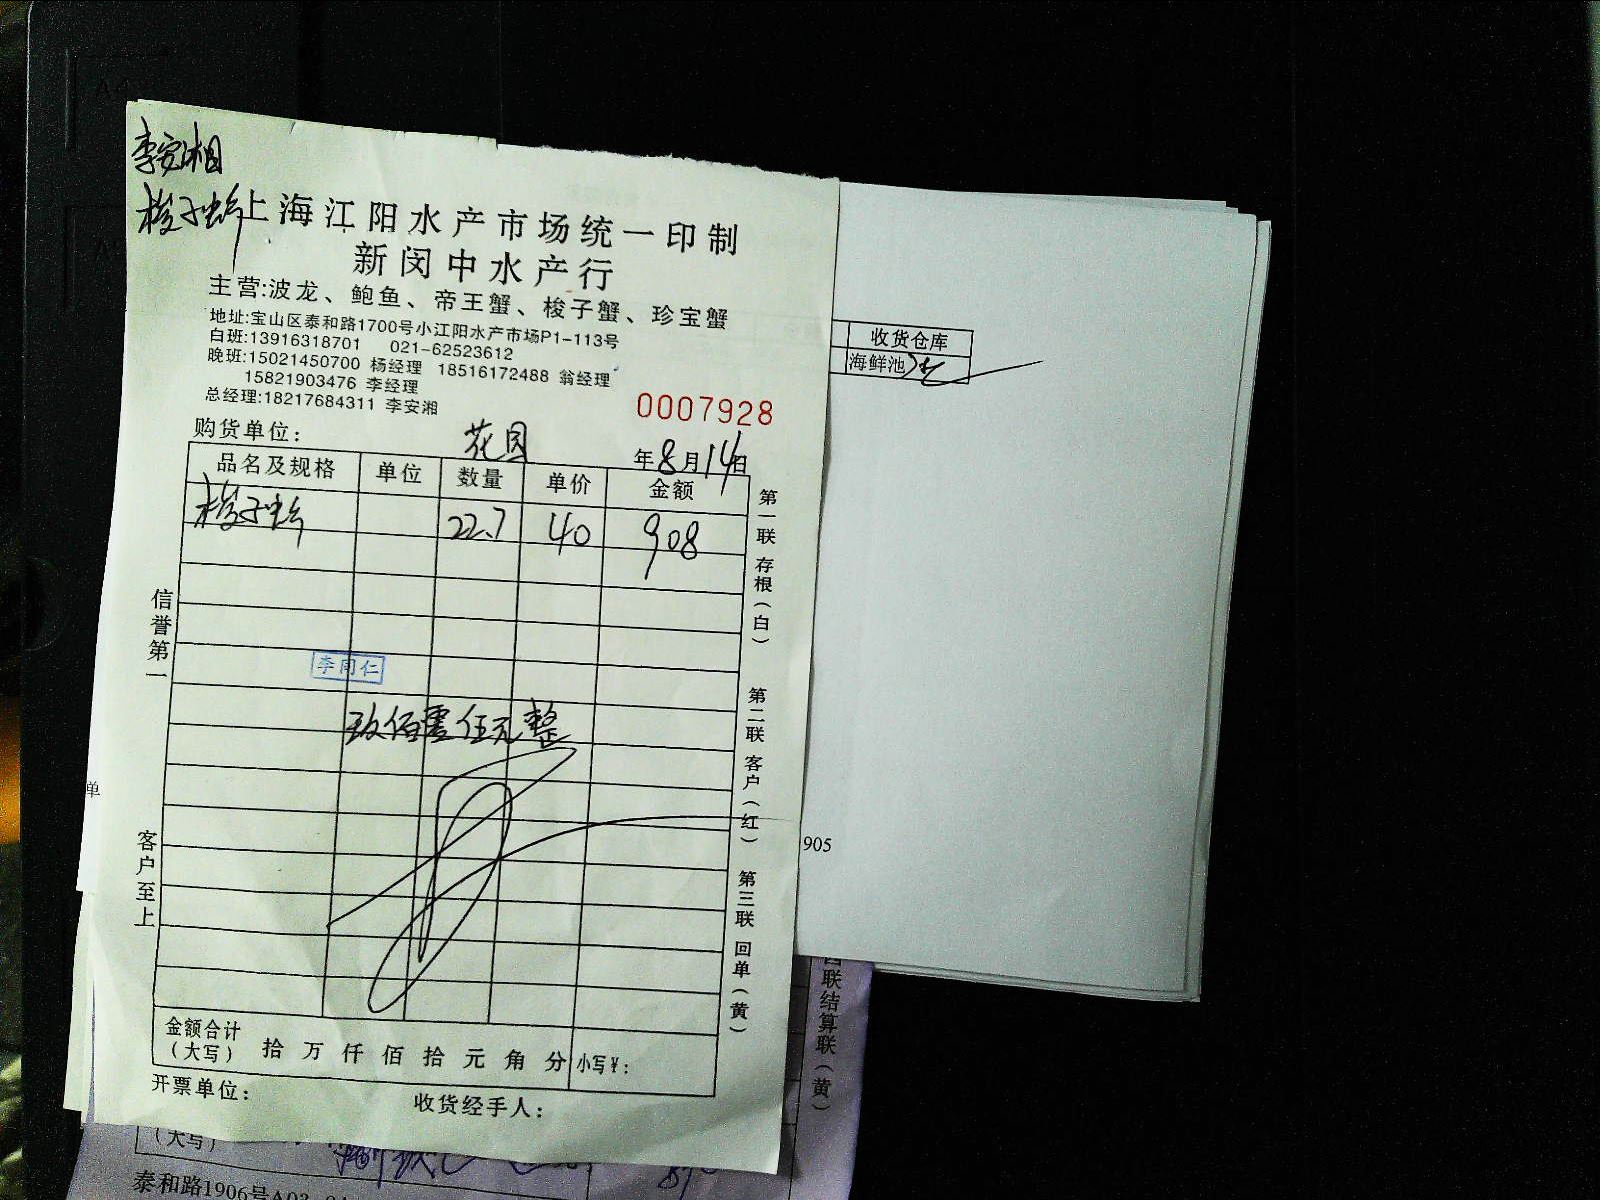 李安湘
梭子蟹
上海江阳水产市场统一印制
新闵中水产行
主营:波龙、鲍鱼、帝王蟹、梭子蟹、珍宝蟹
地址:宝山区泰和路1700号小江阳水产市场P1-113号
白班:13916318701 021-62523612
晚班:15021450700 杨经理 18516172488 翁经理
15821903476 李经理
总经理:18217684311 李安湘
0007928
购货单位: 花园 年8月14日
品名及规格 单位 数量 单价 金额
梭子蟹 22.7 40 908
李同仁
玖佰零伍元整
金额合计
(大写) 拾 万 仟 佰 拾 元 角 分 小写¥:
开票单位: 收货经手人:
信誉第一
客户至上
第一联 存根(白)
第二联 客户(红)
第三联 回单(黄)
收货仓库
海鲜池
905
单
联结算联(黄)
(大写)
泰和路1906号A03